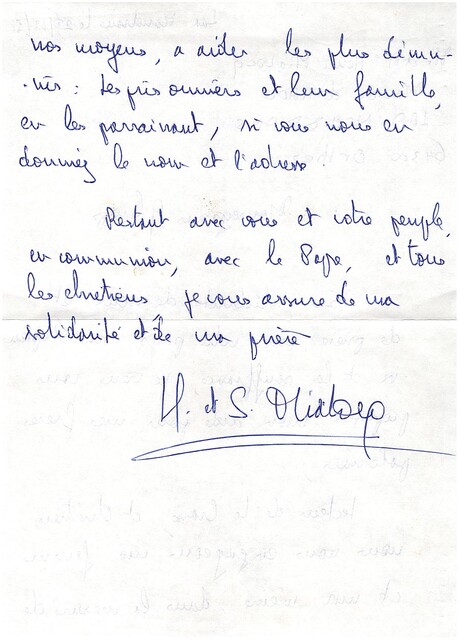 nos moyens, a aider les plus dému-
-nis : les prisonniers et leur famille,
en les parrainant, si vous nous en
donniez le nom et l'adresse.
Restant avec vous et votre peuple,
en communion, avec le Pape, et tous
les chrétiens je vous assure de ma
solidarité et de ma prière
H. et S.